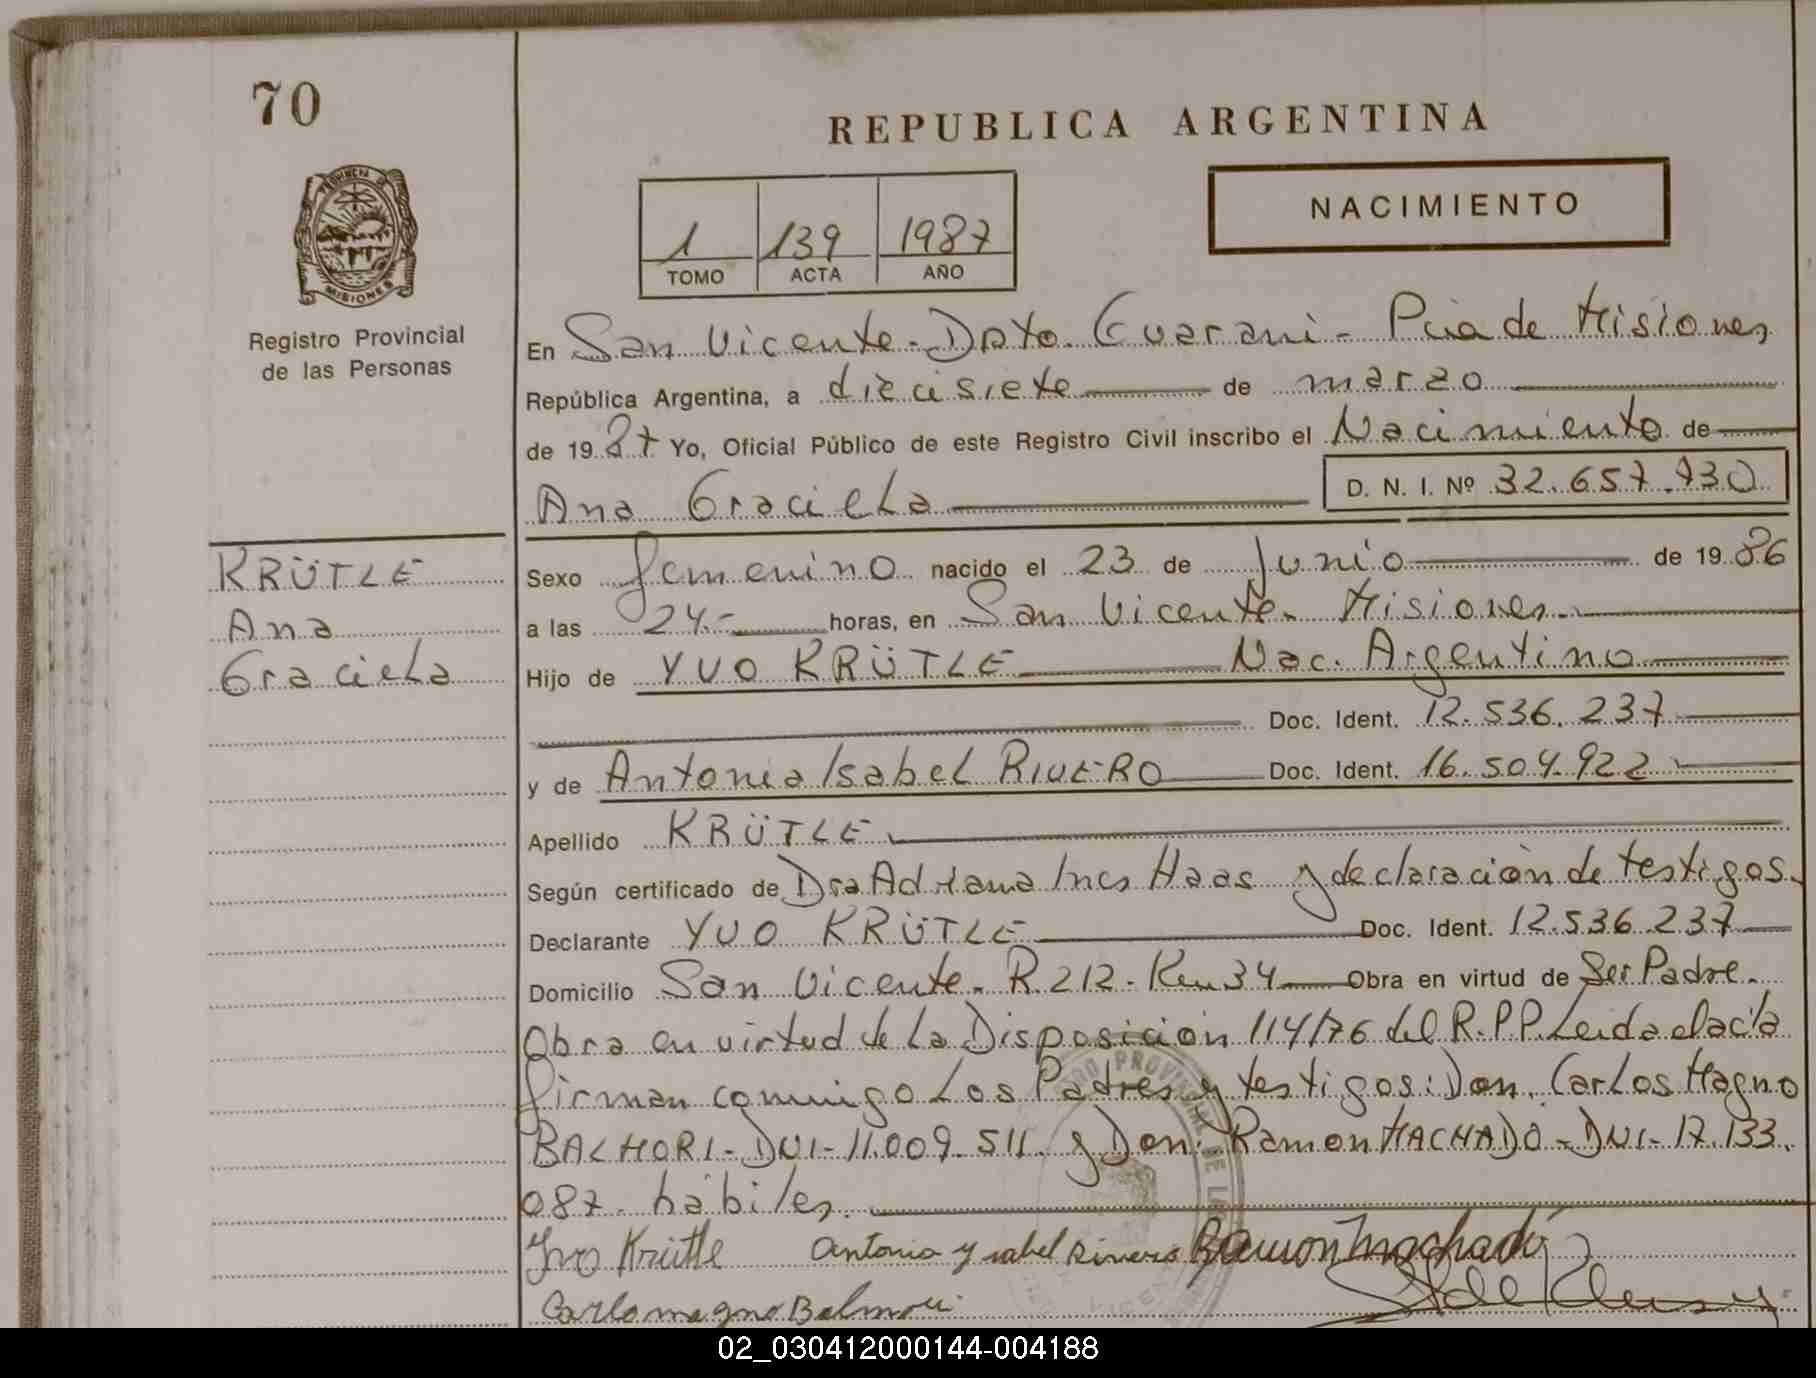 70
REPUBLICA ARGENTINA
NACIMIENTO
1 139 1987
TOMO ACTA AÑO
PROVINCIA DE
MISIONES
Registro Provincial
de las Personas
En San Vicente - Dpto. Guarani - Pcia de Misiones
República Argentina, a diecisiete de marzo
de 1987 Yo, Oficial Público de este Registro Civil inscribo el Nacimiento de
Ana Graciela D. N. I. Nº 32.657.730
KRÜTLE
Ana
Graciela
Sexo femenino nacido el 23 de Junio de 1986
a las 24.- horas, en San Vicente - Misiones.-
Hijo de YVO KRÜTLE Nac. Argentino
Doc. Ident. 12.536.237
y de Antonia Isabel RIVERO Doc. Ident. 16.504.922
Apellido KRÜTLE
Según certificado de Dra Adriana Ines Haas y declaración de testigos.
Declarante YVO KRÜTLE Doc. Ident. 12.536.237
Domicilio San Vicente - R. 212 - Km 34 Obra en virtud de Ser Padre.
Obra en virtud de la Disposición 114/76 del R.P.P. Leida el acta
firman conmigo los Padres y testigos: Don. Carlos Magno
BALMORI - DNI - 11.009.511 y Don: Ramon MACHADO - DNI - 17.133.
087 - hábiles.
Yvo Krütle Antonia Ysabel Rivero Ramon Machado
Carlomagno Balmori
02_030412000144-004188